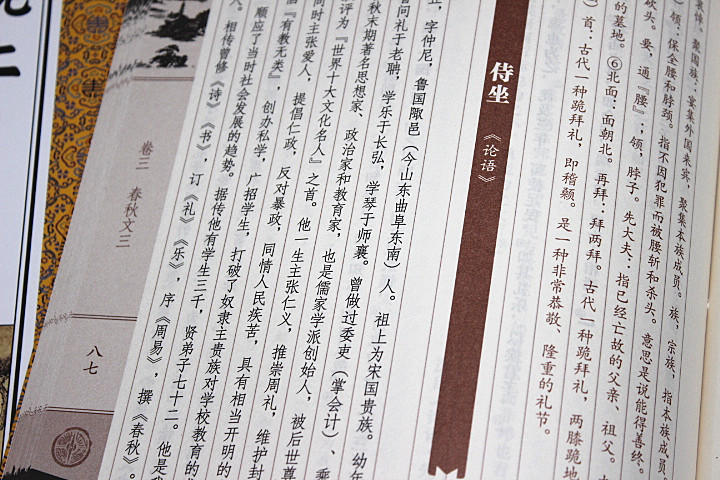 哀悼，聚国族：宴集外国来宾，聚集本族成员。族，宗族，指本族成员。
领：保全腰和脖颈。指不因犯罪而被腰斩和杀头。意思是说能得善终。
砍头。要，通『腰』；领，脖子。先大夫：指已经亡故的父亲、祖父。
的墓地。⑥北面：面朝北。再拜：拜两拜。古代一种跪拜礼，两膝跪地
首：古代一种跪拜礼，即稽颡。是一种非常恭敬、隆重的礼节。
侍坐
《论语》
，字仲尼，鲁国陬邑（今山东曲阜东南）人。祖上为宋国贵族。幼年
问礼于老聃，学乐于长弘，学琴于师襄。曾做过委吏（掌会计）、乘
秋末期著名思想家、政治家和教育家，也是儒家学派创始人，被后世尊
评为『世界十大文化名人』之首。他一生主张仁义，推崇周礼，维护封
同时主张爱人，提倡仁政，反对暴政，同情人民疾苦，具有相当开明的
『有教无类』，创办私学，广招学生，打破了奴隶主贵族对学校教育的
顺应了当时社会发展的趋势。据传他有学生三千，贤弟子七十二。他是
人。相传曾修《诗》《书》，订《礼》《乐》，序《周易》，撰《春秋》。
卷三 春秋文三
八七